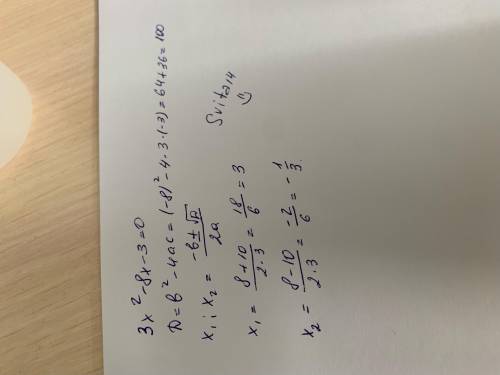 3x² - 8x - 3 = 0
D = b² - 4ac = (-8)² - 4 · 3 · (-3) = 64 + 36 = 100
x₁; x₂ = (-b ± √D) / 2a
x₁ = (8 + 10) / (2 · 3) = 18/6 = 3
x₂ = (8 - 10) / (2 · 3) = -2/6 = -1/3.
Svita14